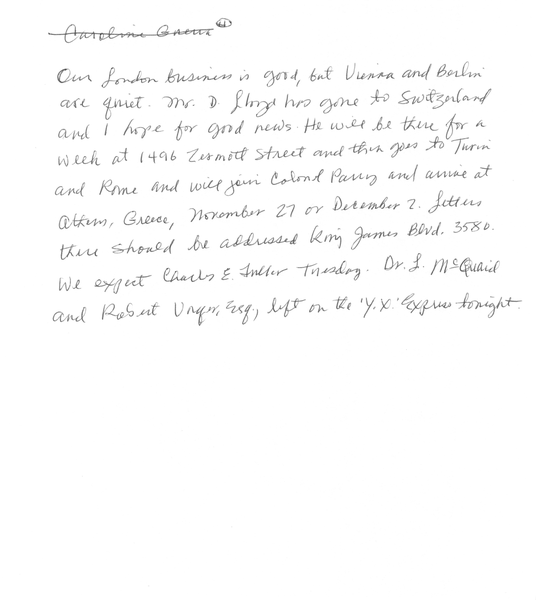 Caroline
Our London business is good, but Vienna and Berlin
are quiet. Mr. D. Lloyd has gone to Switzerland
and I hope for good news. He will be there for a
week at 1496 Zermott Street and then goes to Turin
and Rome and will join Colonel Parry and arrive at
Athens, Greece, November 27 or December 2. Letters
there should be addressed King James Blvd. 3580.
We expect Charles E. Fuller Tuesday. Dr. L. McQuaid
and Robert Unger, Esq., left on the 'Y.X.' Express tonight.